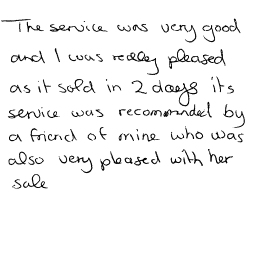 The service was very good
and I was really pleased
as it sold in 2 days its
service was recommended by
a friend of mine who was
also very pleased with her
sale